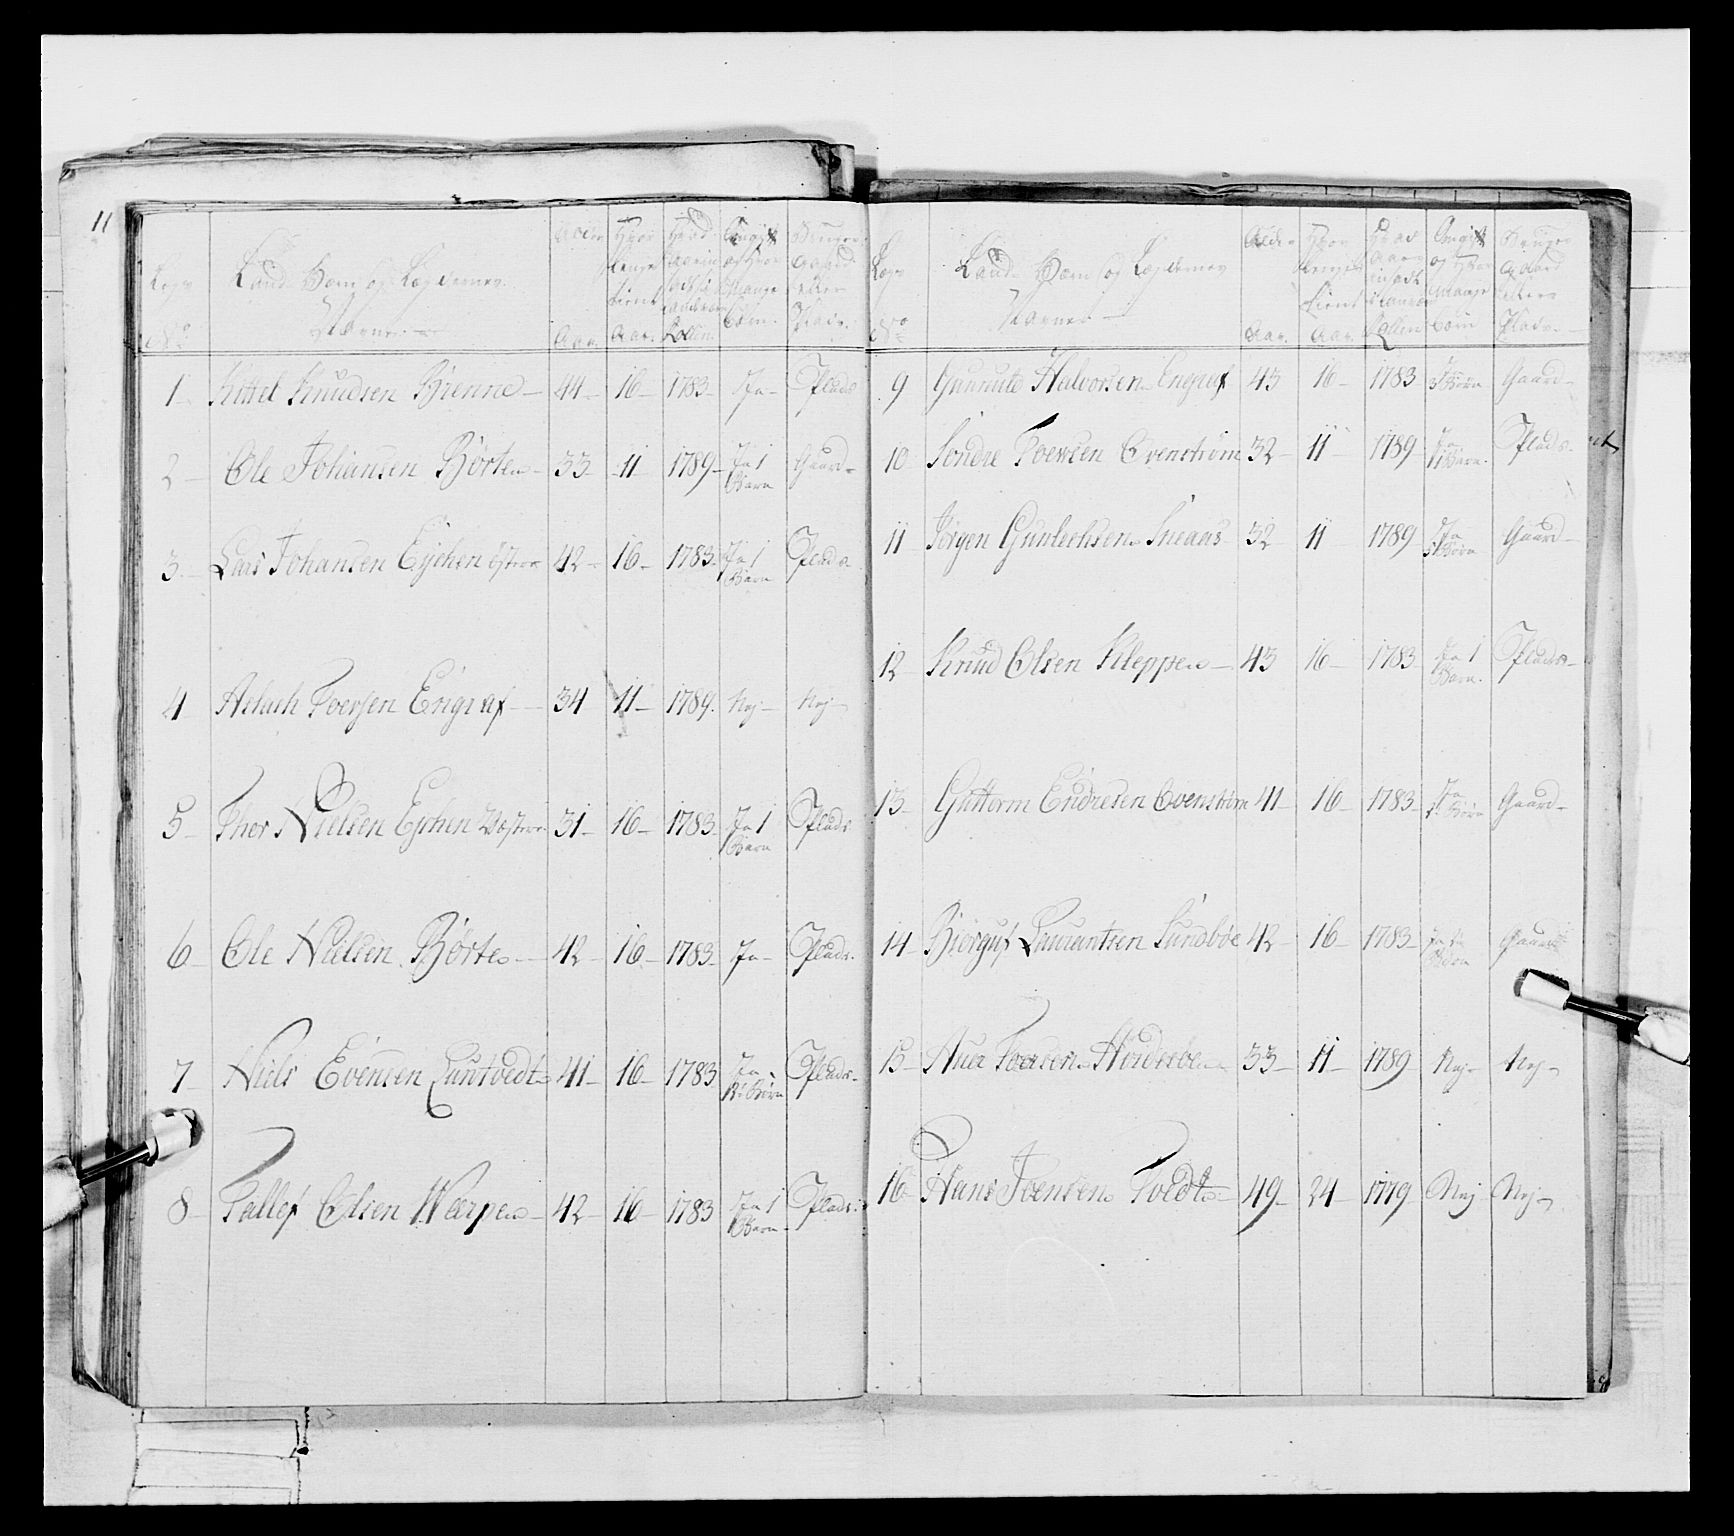 11
Legs No
Land Værn og Lægdernes Navne
Alder Aar.
Hvor lenge tient Aar.
Hvad Aar indsadt i Landværn Rollen
Om gift og Hvor Mange Børn.
Bruger Gaard eller Plads.
1 Kittel Knudsen Brenne 44 16 1783 Ja Plads
2 Ole Johansen Børte 33 11 1789 Ja 1 Barn Gaard
3 Lars Johansen Ejchen østre 42 16 1783 Ja 1 Barn Plads
4 Aslach Toersen Engraf 34 11 1789 Nej Nej
5 Thor Nielsen Ejchen Wæstre 31 16 1783 Ja 1 Barn Plads
6 Ole Nielsen Børte 42 16 1783 Ja Plads
7 Niels Evensen Luntvedt 41 16 1783 Ja Børn Plads
8 Tallef Olsen Warpe 42 16 1783 Ja 1 Barn Plads
Legs No
Land Værn og Lægdernes Navne
Alder Aar.
Hvor lenge tient Aar.
Hvad Aar indsadt i Landværn Rollen
Om gift og Hvor Mange Børn
Bruger Gaard eller Plads.
9 Gunnule Halvorsen Engraf 43 16 1783 Ja Børn Gaard
10 Søndre Toersen Ovenstrøm 32 11 1789 Ja 1 Barn Plads
11 Jørgen Gunlechsen Sneaas 32 11 1789 Ja Børn Gaard
12 Knud Olsen Kleppen 43 16 1783 Ja 1 Barn. Plads
13 Guttorm Endresen Ovenstrøm 41 16 1783 Ja Børn Gaard
14 Biørguf Laurantsen Sundbøe 42 16 1783 Ja Børn Gaard
15 Aner Toersen 33 11 1789 Nej Nej
16 Hans Joensen Tvedt 49 24 1779 Nej Nej